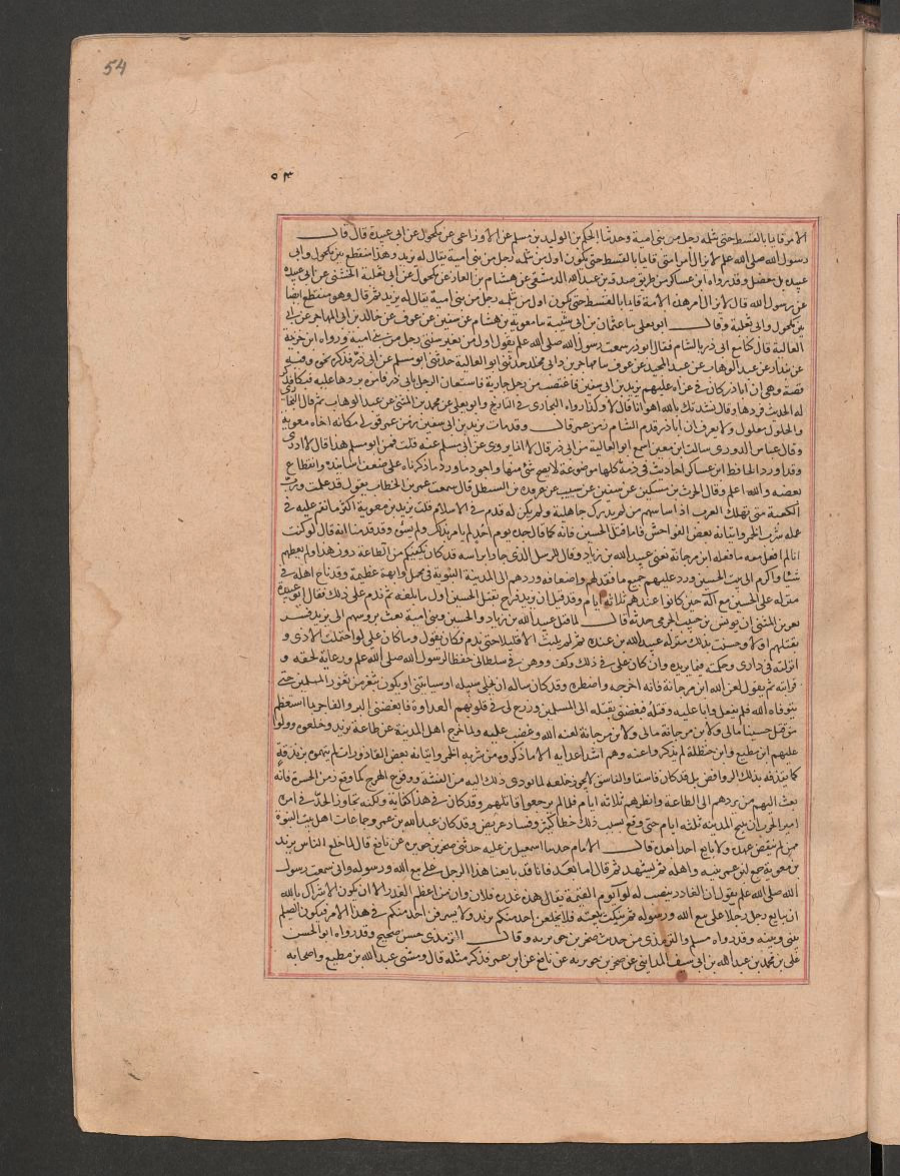 54
٥٤
الامر قايما بالقسط حتى يثلمه رجل من بنى امية وحدثنا الحكم بن الوليد بن مسلم عن الاوزاعى عن مكحول عن ابى عبيدة قال قال
رسول الله صلى الله علم لا يزال امر امتى قايما بالقسط حتى يكون اول من يثلمه رجل من بنى امية يقال له يزيد وهذا منقطع بين مكحول وابى
عبيده بل معضل وقد رواه ابن عساكر من طريق صدقه بن عبد الله الدمشقى عن هشام بن الغاز عن مكحول عن ابى ثعلبة الخشنى عن ابى عبيده
عن رسول الله قال لا يزال امر هذه الامة قايما بالقسط حتى يكون اول من يثلمه رجل من بنى امية يقال له يزيد ثم قال وهو منقطع ايضا
بين مكحول وابى ثعلبة وقال ابو يعلى سا عثمان بن ابى شيبة سا معوية بن هشام عن سفين عن عوف عن خالد بن ابى المهاجر عن ابى
العالية قال كنا مع ابى ذر بالشام فقال ابو ذر سمعت رسول الله صلى الله علم يقول اول من يغير سنتى رجل من بنى امية ورواه ابن خزيمة
عن بندار عن عبد الوهاب بن عبد المجيد عن عوف سا مهاجر بن ابى مخلد حدثنى ابو العالية حدثنى ابو مسلم عن ابى ذر فذكر نحوه وفيه
قصة وهى ان ابا ذر كان فى غزاه عليهم يزيد بن ابى سفين فاغتصب من رجل جارية فاستعان الرجل بابى ذر فامره بردها عليه فتلكا فذكر
له الحديث فردها وقال نشدتك بالله اهو انا قال لا وكذا رواه البخارى فى التاريخ وابو يعلى عن محمد بن المثنى عن عبد الوهاب ثم قال البخارى
والحديث معلول ولا يعرف ان ابا ذر قدم الشام زمن عمر قال وقد مات يزيد بن ابى سفين زمن عمر فولى مكانه اخاه معوية
وقال عباس الدورى سالت ابن معين اسمع ابو العالية من ابى ذر قال لا انما يروى عن ابى مسلم عنه قلت فمن ابو مسلم هذا قال لا ادرى
وقد اورد الحافظ ابن عساكر احاديث فى ذمة كلها موضوعة لا يصح شئ منها واجود ما ورد ما ذكرناه على ضعف اسانيده وانقطاع
بعضه والله اعلم وقال الحرث بن مسكين عن سفين عن شبيب عن عرقده بن المستظل قال سمعت عمر بن الخطاب يقول قد علمت ورب
الكعبة متى تهلك العرب اذا ساسهم من لم يدرك جاهلية ولم يكن له قدم فى الاسلام قلت يزيد بن معوية اكثر ما نقم عليه فى
عمله شرب الخمر واتيانه بعض الفواحش فاما قتل الحسين فانه كما قال جده يوم احد لم يامر بذلك ولم يسؤه وقد قدمنا انه قال لو كنت
انا لم افعل معه ما فعله ابن مرجانة يعنى عبيد الله بن زياد وقال للرسل الذى جاوا براسه قد كان يكفيكم من الطاعة دون هذا ولم يعطهم
شيئا واكرم ال بيت الحسين ورد عليهم جميع ما فقد لهم واضعافه وردهم الى المدينة النبوية فى محمل وابهة عظيمة وقد ناح اهله فى
منزله على الحسين مع اله حين كانوا عندهم ثلاثة ايام وقد قيل ان يزيد فرح بقتل الحسين اول ما بلغه ثم ندم على ذلك فقال ابو عبيدة
معمر بن المثنى ان يونس بن حبيب الجرمى حدثه قال لما قتل عبيد الله بن زياد والحسين وبنى امية بعث بروسهم الى يزيد فسر
بقتلهم اولا وحسنت بذلك منزلة عبيد الله بن عنده ثم لم يلبث الا قليلا حتى ندم فكان يقول وما كان على لو احتملت الاذى و
انزلته فى دارى وحكمته فيما يريده وان كان على فى ذلك وكف ووهن فى سلطانى حفظا لرسول الله صلى الله علم ورعاية لحقه و
قرابته ثم يقول لعن الله ابن مرجانة فانه اخرجه واضطره وقد كان ساله ان يخلى سبيله او ياتينى او يكون بثغر من ثغور المسلمين حتى
يتوفاه الله فلم يفعل وابا عليه وقتله فبغضنى بقتله الى المسلمين وزرع لى فى قلوبهم العداوة فابغضنى البر والفاجر بما استعظم
من قتل حسينا مالى ولابن مرجانة مالى ولابن مرجانة لعنه الله وغضب عليه ولما خرج اهل المدينة عن طاعة يزيد وخلعوه وولوا
عليهم ابن مطيع وابن حنظلة لم يذكروا عنه وهم اشد اعدايه الا ما ذكروه من شربه الخمر واتيانه بعض القاذورات لم يتهموه بزندقة
كما يقذفه بذلك الروافض بل قد كان فاسقا والفاسق لا يجوز خلعه لما يودى ذلك اليه من الفتنة ووقوع الهرج كما وقع زمن الحرة فانه
بعث اليهم من يردهم الى الطاعة وانظرهم ثلاثة ايام فلما لم يرجعوا قاتلهم وقد كان فى هذا كفاية ولكنه تجاوز الحد فى امره
امير الحرب ان يبيح المدينه ثلثه ايام حتى وقع بسبب ذلك خطا كبير وفساد عريض وقد كان عبد الله بن عمر وجماعات اهل بيت النبوة
ممن لم ينقض عهده ولا بايع احدا بعده قال الامام احمد سا اسمعيل بن عليه حدثنى صخر بن جويره عن نافع قال لما خلع الناس يزيد
بن معوية جمع ابن عمر بنيه واهله ثم تشهد ثم قال اما بعد فانا قد بايعنا هذا الرجل على بيع الله ورسوله وانى سمعت رسول
الله صلى الله علم يقول ان الغادر ينصب له لوا يوم القيمة يقال هذه غدرة فلان وان من اعظم الغدر الا ان يكون الاشراك بالله
ان يبايع رجل رجلا على بيع الله ورسوله ثم ينكث بيعته فلا يخلعن احد منكم يزيد ولا يسرفن احد منكم فى هذا الامر فيكون الصلم
بينى وبينه وقد رواه مسلم والترمذى من حديث صخر بن جويريه وقال الترمذى حسن صحيح وقد رواه ابو الحسن
على بن محمد بن عبد الله بن ابى سيف المداينى عن صخر بن جويريه عن نافع عن ابن عمر فذكر مثله قال ومشى عبد الله بن مطيع واصحابه